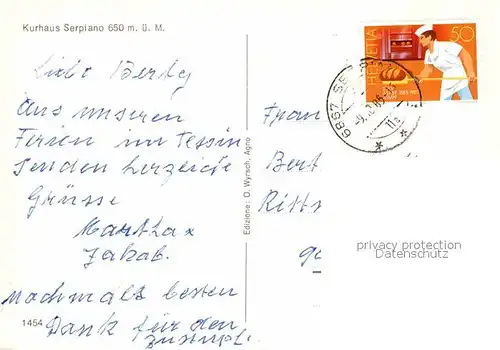 Kurhaus Serpiano 650 m. ü. M.
Liebe Berty
Aus unseren
Ferien im Tessin
senden herzliche
Grüsse
Martha
Jakob.
Nochmals besten
Dank für den
1454
Edizione: O. Wyrsch, Agno
HELVETIA 50
6867 SE
Bert
privacy protection
Datenschutz